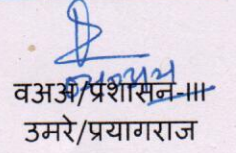 वअअ/प्रशासन-III
उमरे/प्रयागराज